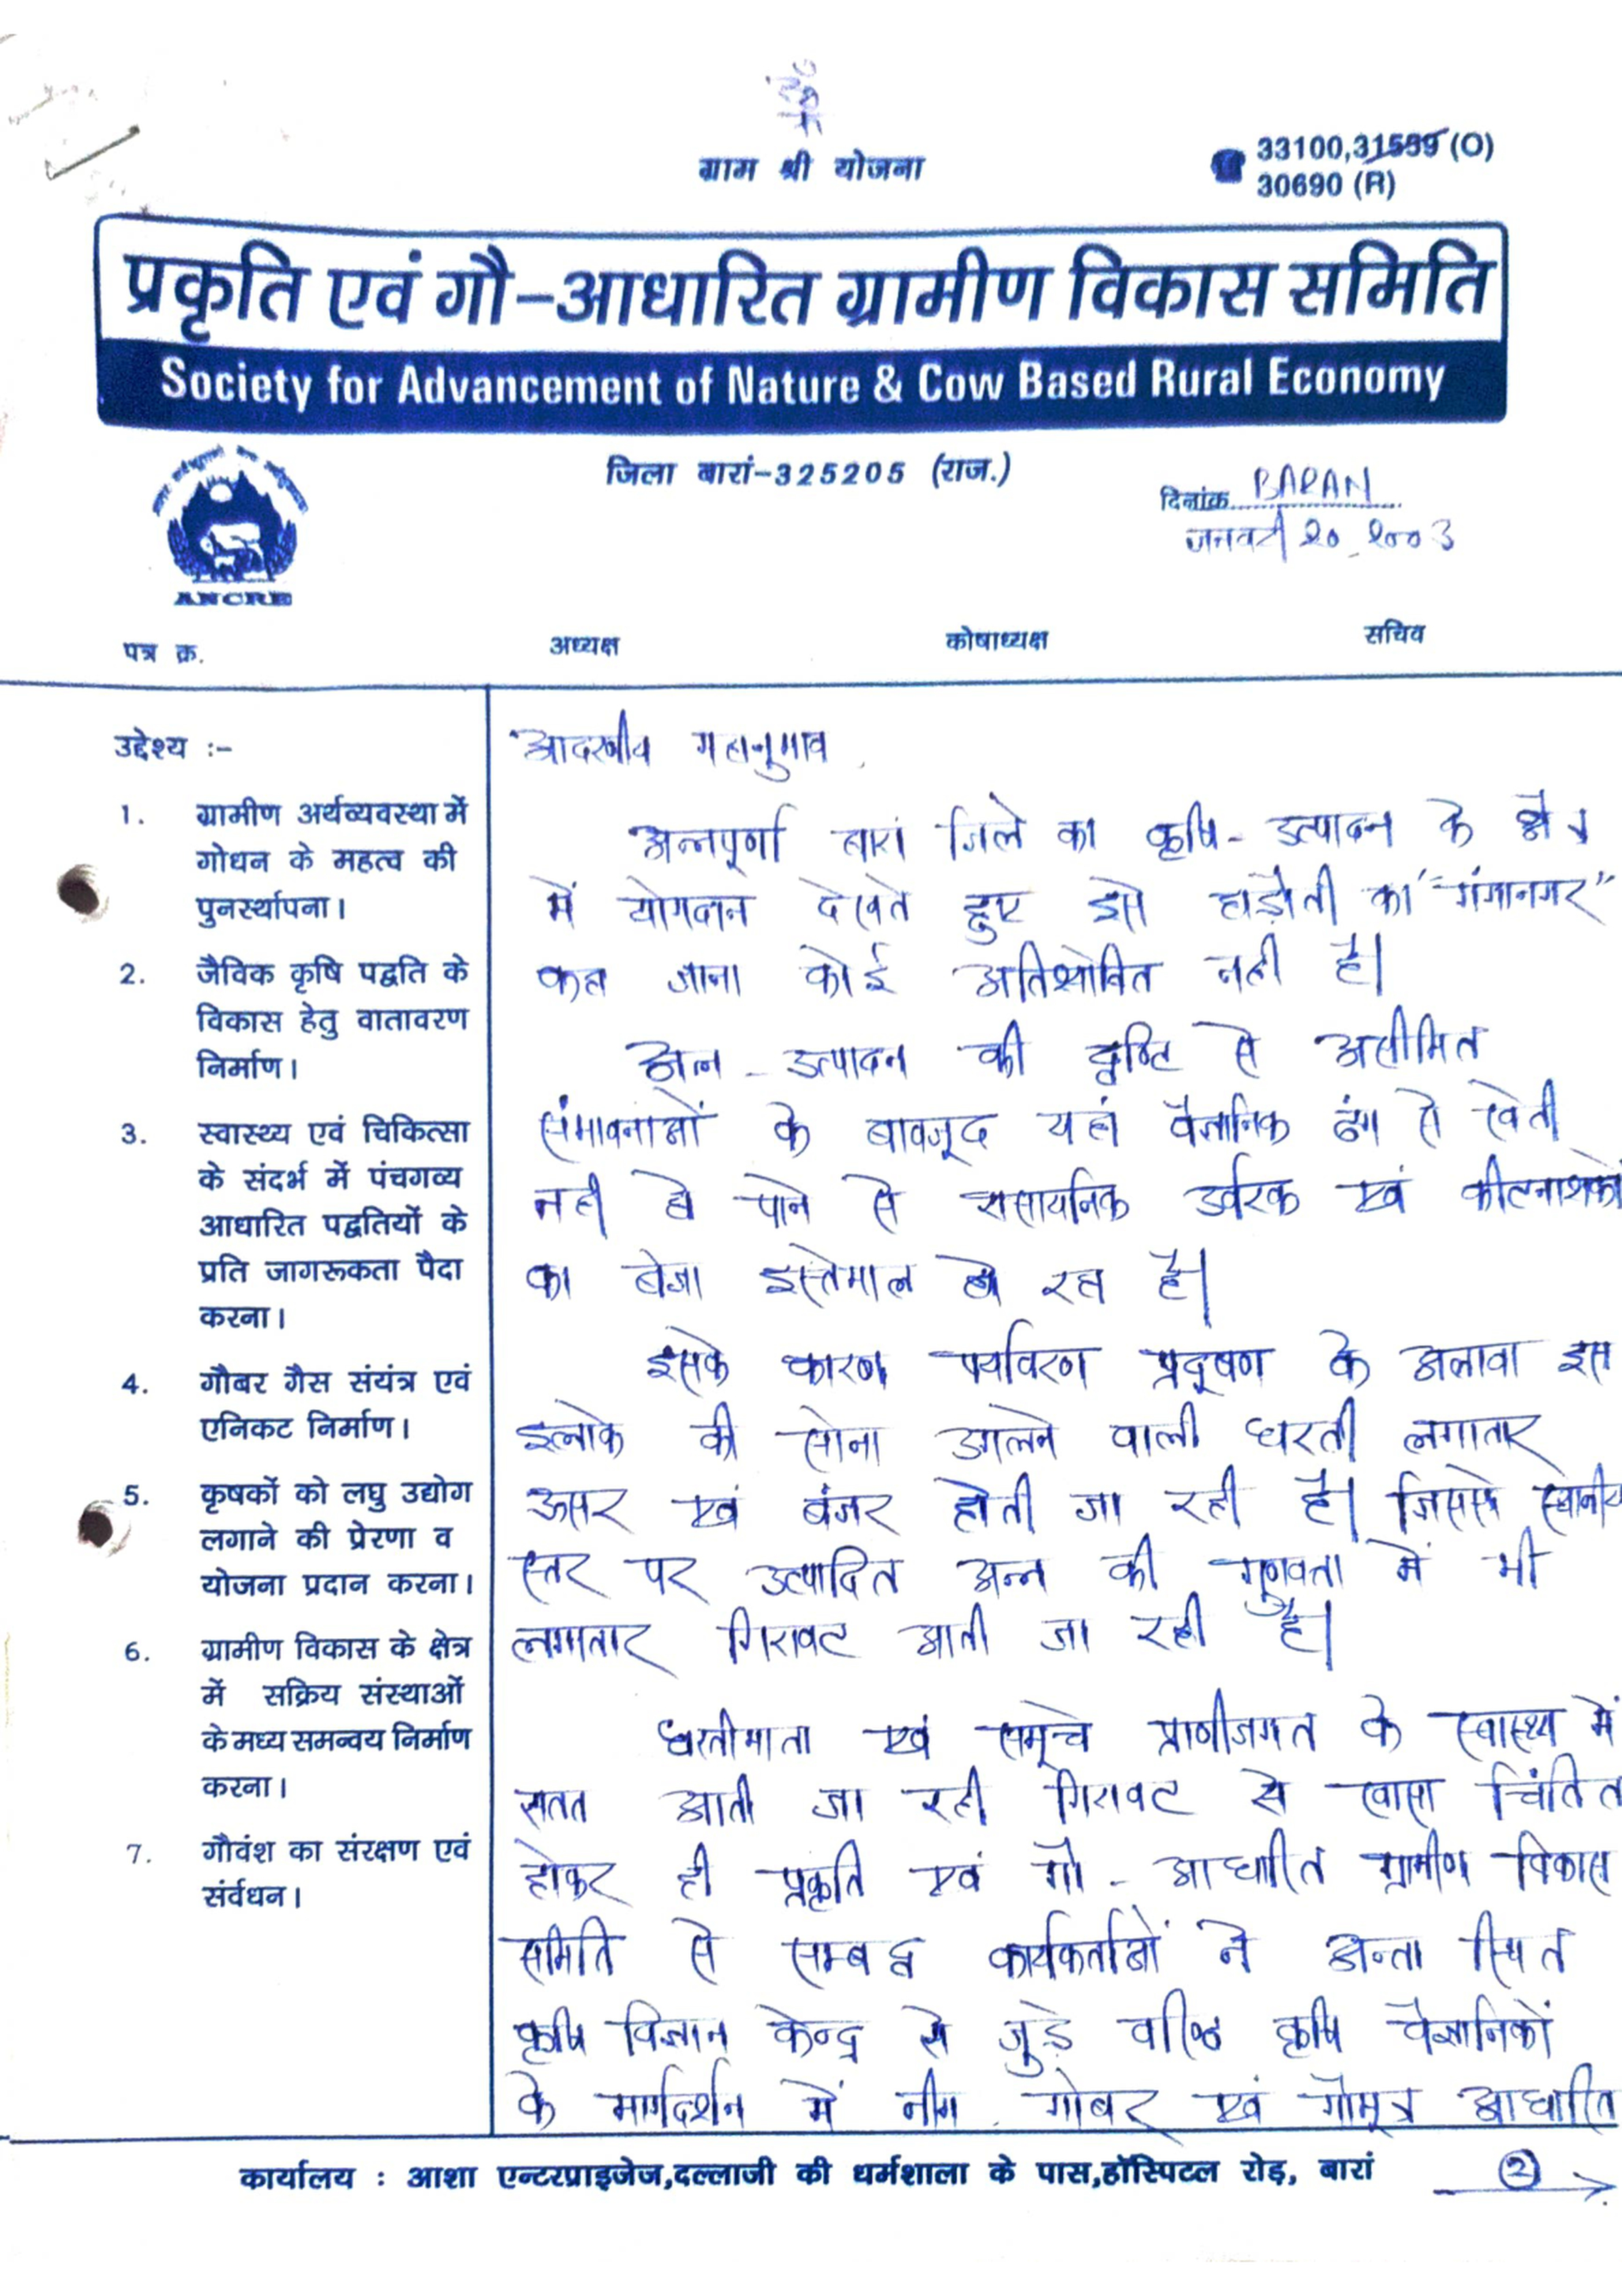 ॐ
ग्राम श्री योजना
33100,31539 (O)
30690 (R)
प्रकृति एवं गौ-आधारित ग्रामीण विकास समिति
Society for Advancement of Nature & Cow Based Rural Economy
जिला बारां-325205 (राज.)
दिनांक BARAN
जनवरी २०, २००३
ANCRE
पत्र क्र. अध्यक्ष कोषाध्यक्ष सचिव
उद्देश्य :-
1. ग्रामीण अर्थव्यवस्था में
गोधन के महत्व की
पुनर्स्थापना।
2. जैविक कृषि पद्वति के
विकास हेतु वातावरण
निर्माण।
3. स्वास्थ्य एवं चिकित्सा
के संदर्भ में पंचगव्य
आधारित पद्वतियों के
प्रति जागरूकता पैदा
करना।
4. गौबर गैस संयंत्र एवं
एनिकट निर्माण।
5. कृषकों को लघु उद्योग
लगाने की प्रेरणा व
योजना प्रदान करना।
6. ग्रामीण विकास के क्षेत्र
में सक्रिय संस्थाओं
के मध्य समन्वय निर्माण
करना।
7. गौवंश का संरक्षण एवं
संर्वधन।
आदरणीय महानुभाव,
अन्नपूर्णा बारां जिले का कृषि-उत्पादन के क्षेत्र
में योगदान देखते हुए इसे हाड़ौती का "गंगानगर"
कहा जाना कोई अतिश्योक्ति नहीं है।
अन्न-उत्पादन की दृष्टि से असीमित
संभावनाओं के बावजूद यहां वैज्ञानिक ढंग से खेती
नहीं हो पाने से रासायनिक उर्वरक एवं कीटनाशकों
का बेजा इस्तेमाल हो रहा है।
इसके कारण पर्यावरण प्रदूषण के अलावा इस
इलाके की सोना उगलने वाली धरती लगातार
ऊसर एवं बंजर होती जा रही है। जिससे स्थानीय
स्तर पर उत्पादित अन्न की गुणवत्ता में भी
लगातार गिरावट आती जा रही है।
धरतीमाता एवं समूचे प्राणीजगत के स्वास्थ्य में
सतत आती जा रही गिरावट से खासा चिंतित
होकर ही प्रकृति एवं गौ-आधारित ग्रामीण विकास
समिति से सम्बद्ध कार्यकर्ताओं ने अन्ता स्थित
कृषि विज्ञान केन्द्र से जुड़े वरिष्ठ कृषि वैज्ञानिकों
के मार्गदर्शन में नीम, गोबर एवं गौमूत्र आधारित
कार्यालय : आशा एन्टरप्राइजेज,दल्लाजी की धर्मशाला के पास,हॉस्पिटल रोड़, बारां
2